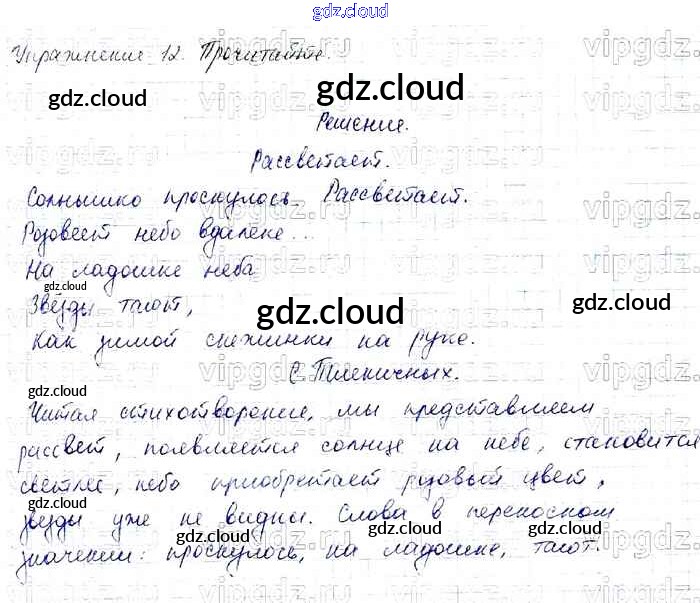 gdz.cloud
Упражнение 12. Прочитайте.
gdz.cloud gdz.cloud
Решение.
Рассветает.
Солнышко проснулось. Рассветает.
Розовеет небо вдалеке...
На ладошке неба
gdz.cloud
Звёзды тают,
gdz.cloud gdz.cloud
Как зимой снежинки на руке.
С. Пшеничных.
gdz.cloud gdz.cloud
Читая стихотворение, мы представляем
рассвет, появляется солнце на небе, становится
gdz.cloud gdz.cloud
светлее, небо приобретает розовый цвет,
gdz.cloud
звёзды уже не видны. Слова в переносном
gdz.cloud gdz.cloud gdz.cloud
значении: проснулось, на ладошке, тают.